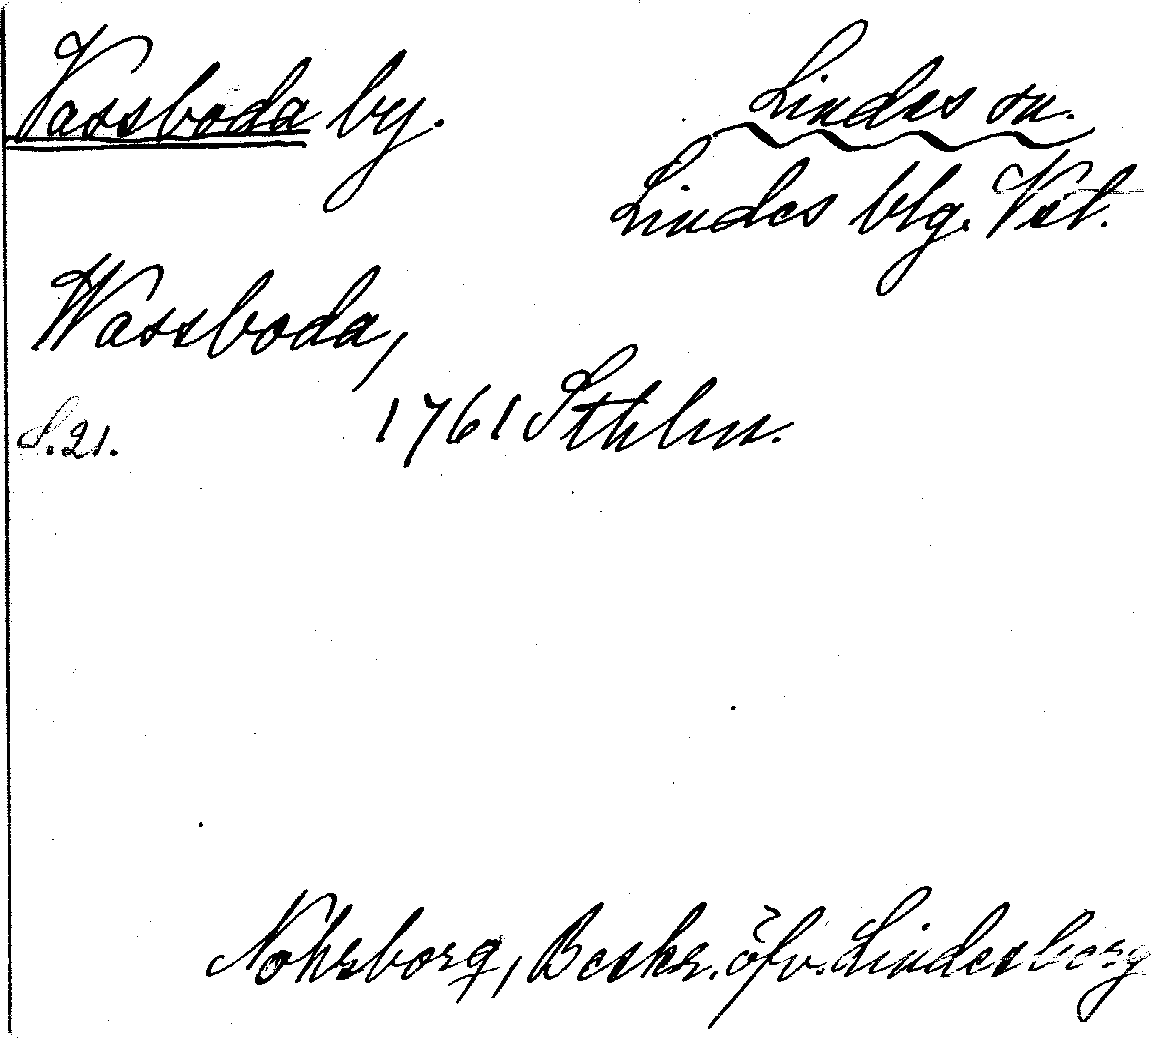 Vassboda by. Lindes sn.
Lindes blg. Vstl.
Wassboda,
S. 21. 1761 Sthlm.
Nohrborg, Beskr. öfv. Lindesberg